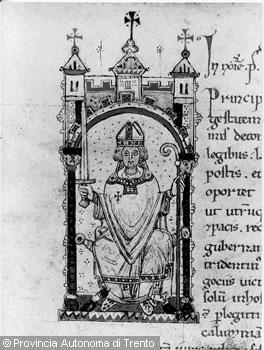 In noīe. P
Princip
gestatem
mis decor
legibus
positis. et
oportet
ut utrūq
& pacis. rec
gubernar
tridentin
gocius uict
solū in ho
& plegitti
calumnia
© Provincia Autonoma di Trento